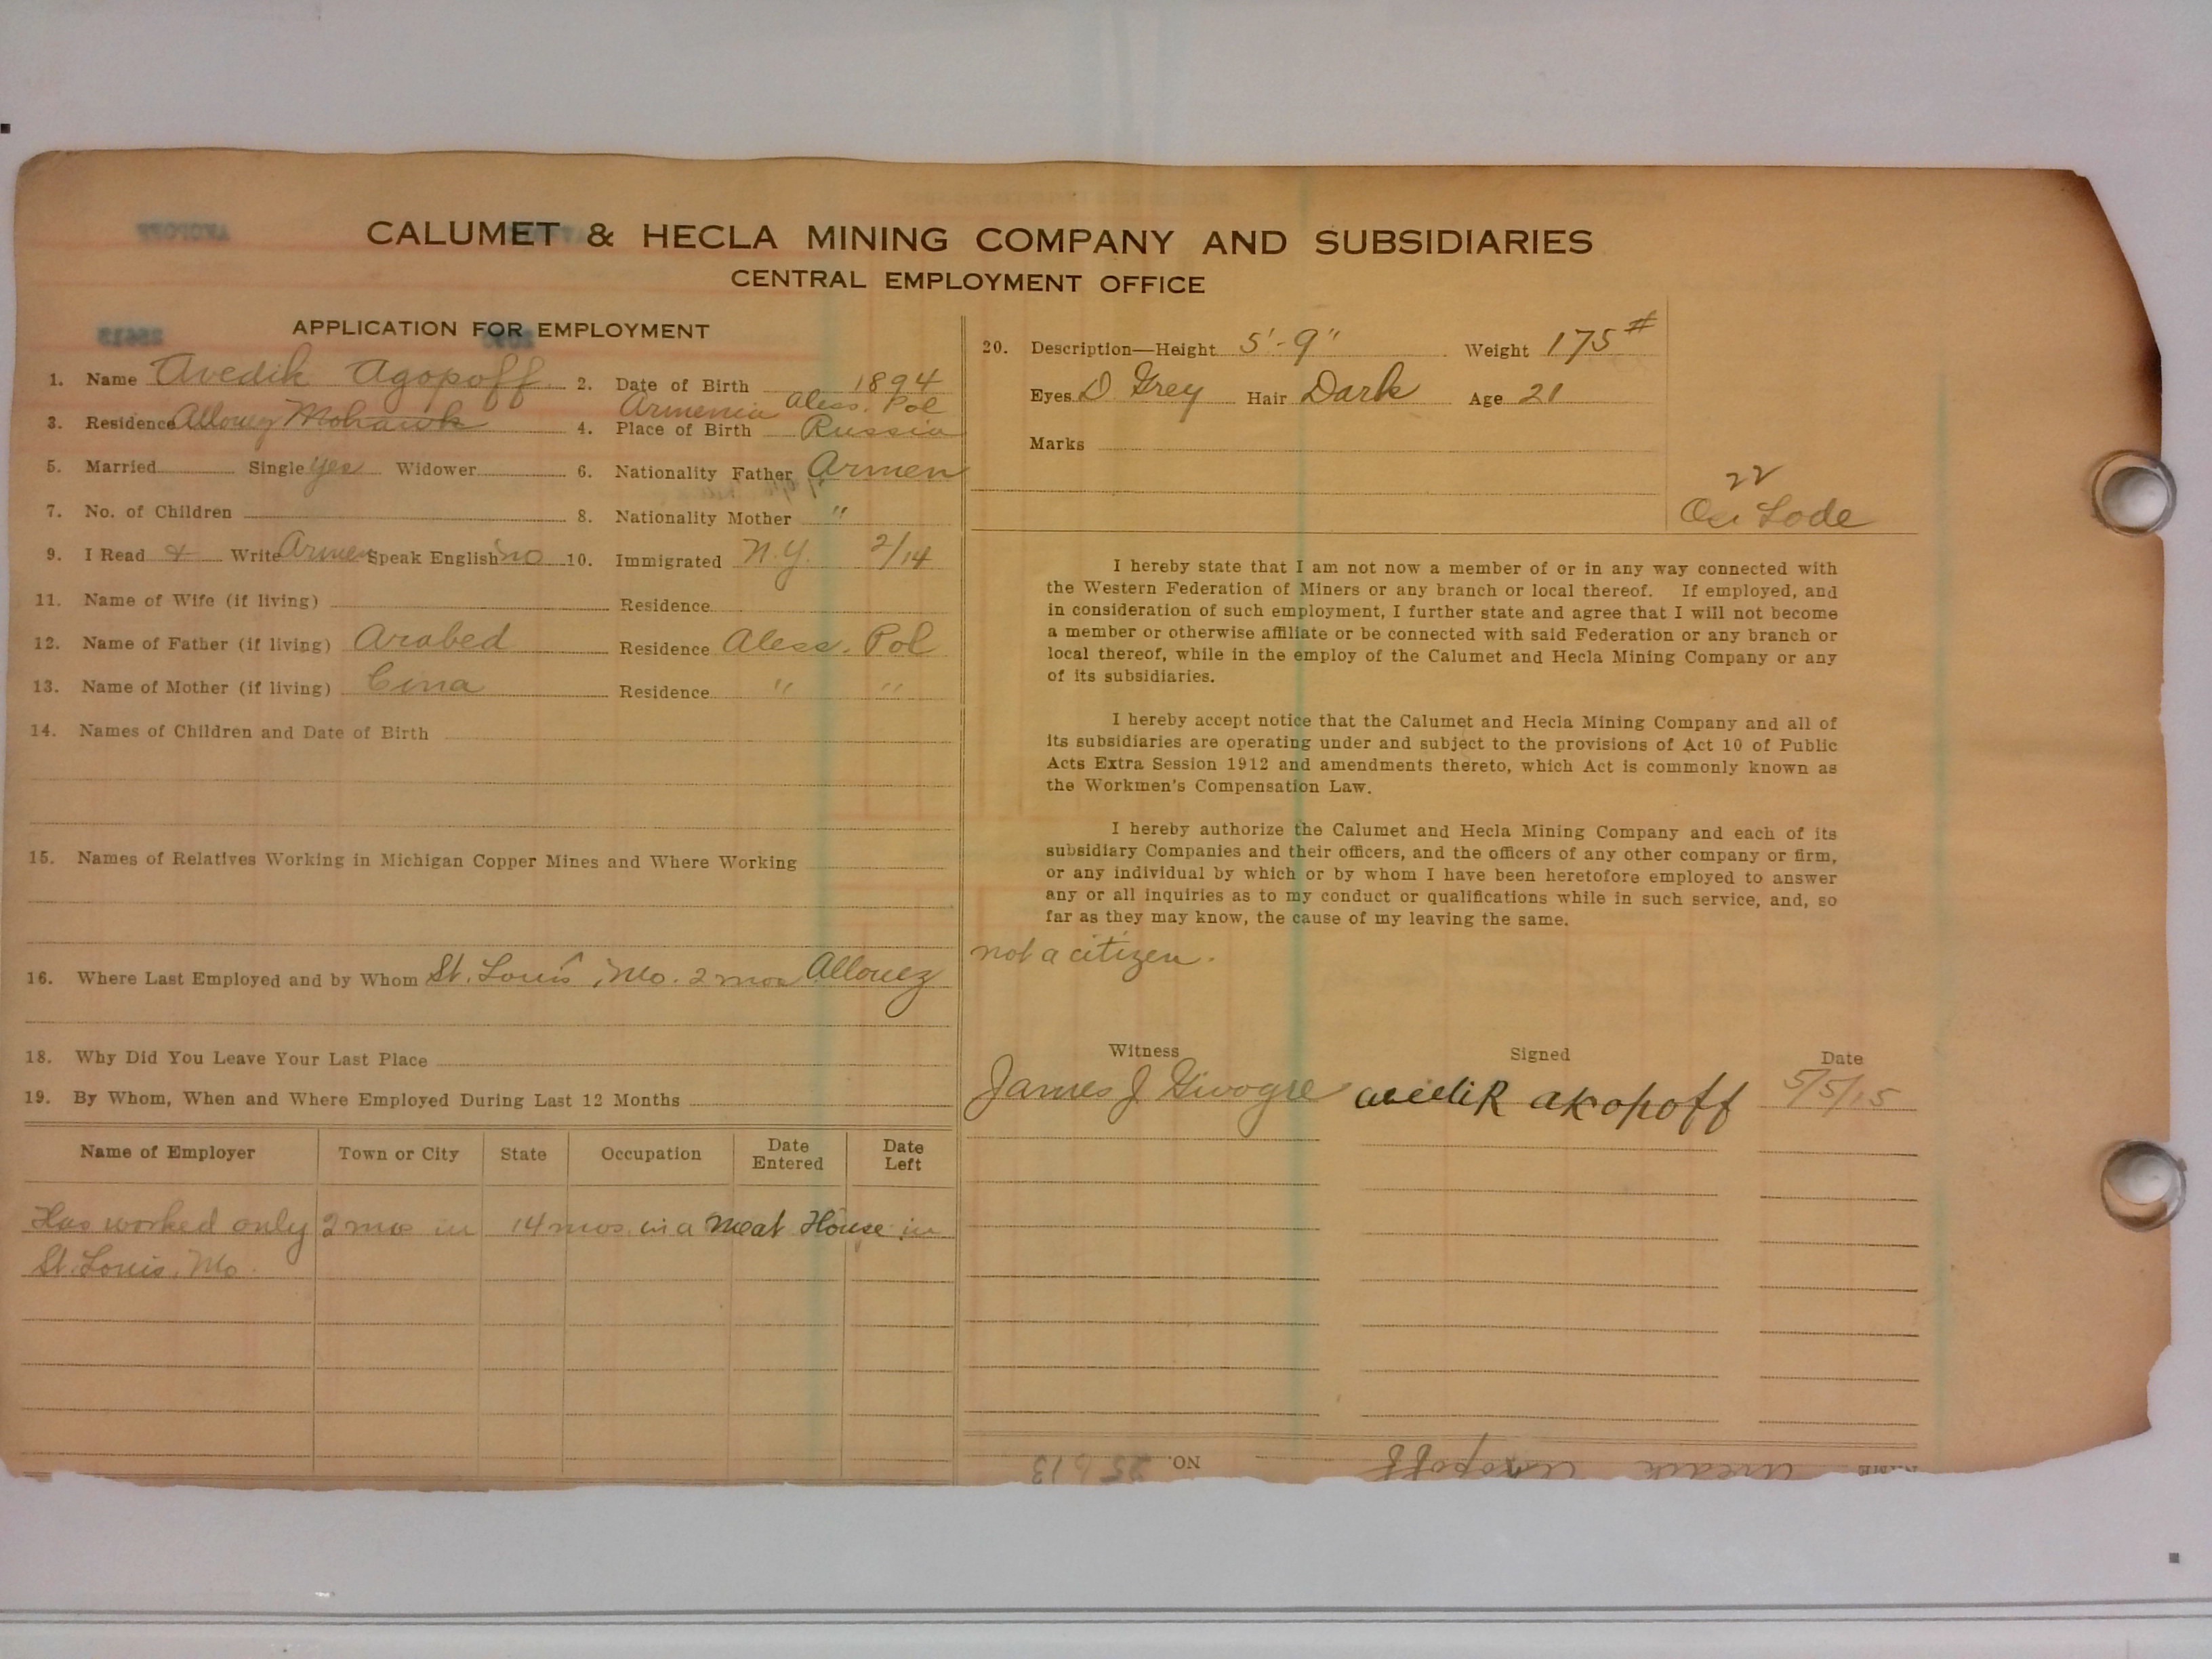 CALUMET & HECLA MINING COMPANY AND SUBSIDIARIES
CENTRAL EMPLOYMENT OFFICE
APPLICATION FOR EMPLOYMENT
1. Name Avedik Agopoff 2. Date of Birth 1894
Armenia Aless. Pol
3. Residence Allouez Mohawk 4. Place of Birth Russia
5. Married Single yes Widower 6. Nationality Father Armen
7. No. of Children 8. Nationality Mother "
9. I Read & Write Armen Speak English no 10. Immigrated N.Y. 2/14
11. Name of Wife (if living) Residence
12. Name of Father (if living) Arabed Residence Aless. Pol
13. Name of Mother (if living) Residence " "
14. Names of Children and Date of Birth
15. Names of Relatives Working in Michigan Copper Mines and Where Working
16. Where Last Employed and by Whom St. Louis, Mo. 2 mos Allouez
18. Why Did You Leave Your Last Place
19. By Whom, When and Where Employed During Last 12 Months
Name of Employer Town or City State Occupation Date Entered Date Left
Has worked only 2 mos in 14 mos. in a Meat House in
St. Louis. Mo.
20. Description—Height 5'-9" Weight 175#
Eyes D. Grey Hair Dark Age 21
Marks
22
Lode
I hereby state that I am not now a member of or in any way connected with
the Western Federation of Miners or any branch or local thereof. If employed, and
in consideration of such employment, I further state and agree that I will not become
a member or otherwise affiliate or be connected with said Federation or any branch or
local thereof, while in the employ of the Calumet and Hecla Mining Company or any
of its subsidiaries.
I hereby accept notice that the Calumet and Hecla Mining Company and all of
its subsidiaries are operating under and subject to the provisions of Act 10 of Public
Acts Extra Session 1912 and amendments thereto, which Act is commonly known as
the Workmen's Compensation Law.
I hereby authorize the Calumet and Hecla Mining Company and each of its
subsidiary Companies and their officers, and the officers of any other company or firm,
or any individual by which or by whom I have been heretofore employed to answer
any or all inquiries as to my conduct or qualifications while in such service, and, so
far as they may know, the cause of my leaving the same.
not a citizen.
Witness Signed Date
James J akopoff 5/5/15
NO. 25613 Avedik Akopoff